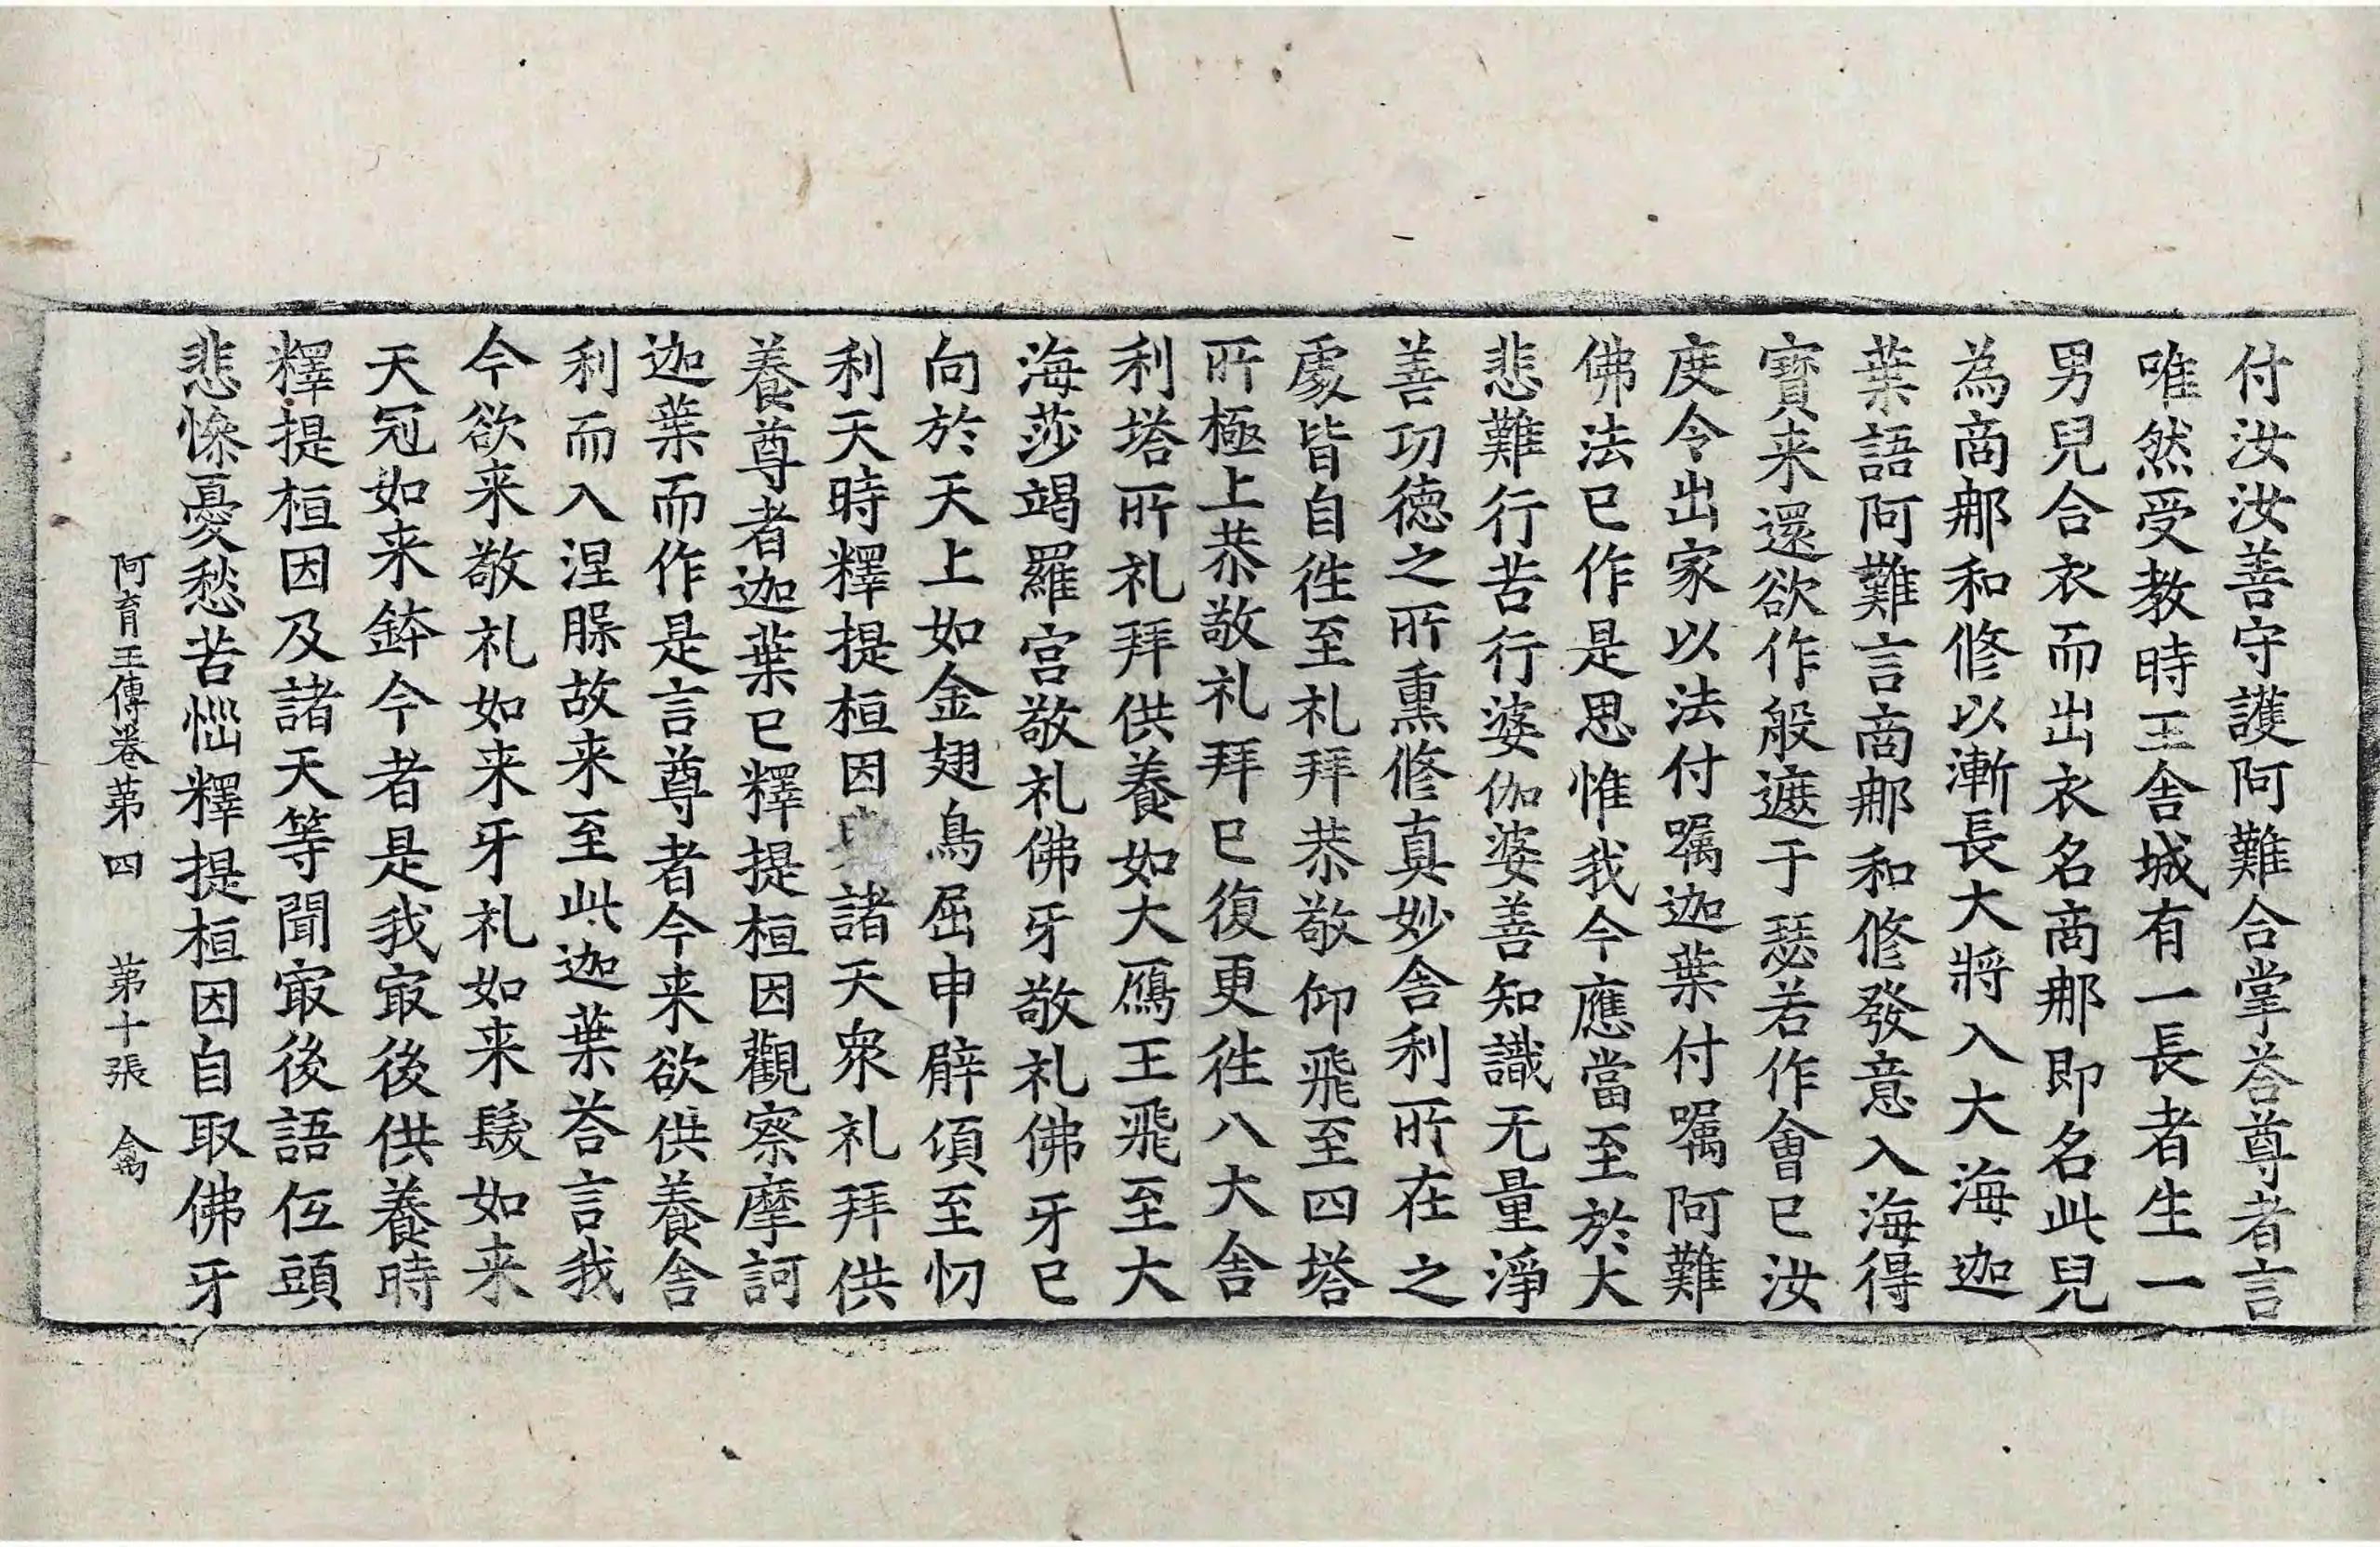 付汝汝善守護阿難合掌荅尊者言
唯然受教時王舍城有一長者生一
男兒合衣而出衣名商那即名此兒
為商那和修以漸長大將入大海迦
葉語阿難言商那和修發意入海得
寳来還欲作般遮于瑟若作會已汝
度令出家以法付嘱迦葉付嘱阿難
佛法已作是思惟我今應當至於大
悲難行苦行婆伽婆善知識无量淨
善功德之所熏修真妙舍利所在之
處皆自徃至礼拜恭敬仰飛至四塔
所極上恭敬礼拜已復更徃八大舍
利塔所礼拜供養如大鴈王飛至大
海莎竭羅宫敬礼佛牙敬礼佛牙已
向於天上如金翅鳥屈申臂頃至忉
利天時釋提桓因諸天衆礼拜供
養尊者迦葉已釋提桓因觀察摩訶
迦葉而作是言尊者今来欲供養舍
利而入涅槃故来至此迦葉荅言我
今欲来敬礼如来牙礼如来髮如来
天冠如来鉢今者是我㝡後供養時
釋提桓因及諸天等聞㝡後語仾頭
悲慘憂愁苦惱釋提桓因自取佛牙
阿育王傳卷苐四 苐十張 禽